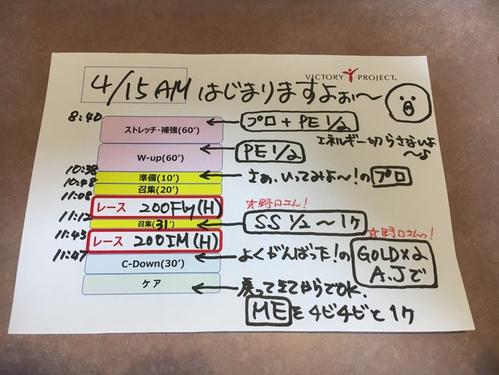 VICTORY PROJECT®
4/15AM はじまりますよぉ〜
8:40
ストレッチ・補強(60')
プロ + PE 1/2
エネルギー切らさないよ〜♪
W-up(60')
PE 1/2
10:38
準備(10')
さぁ、いってみよ〜!のプロ
10:48
召集(20')
11:08
レース 200Fly(H)
11:12
召集(31')
SS 1/2〜1ヶ
11:43
レース 200IM(H)
11:47
C-Down(30')
よくがんばった!の GOLD×2 A.Jで
ケア
戻って来てからでOK.
MEを4ビ4ビと1ヶ